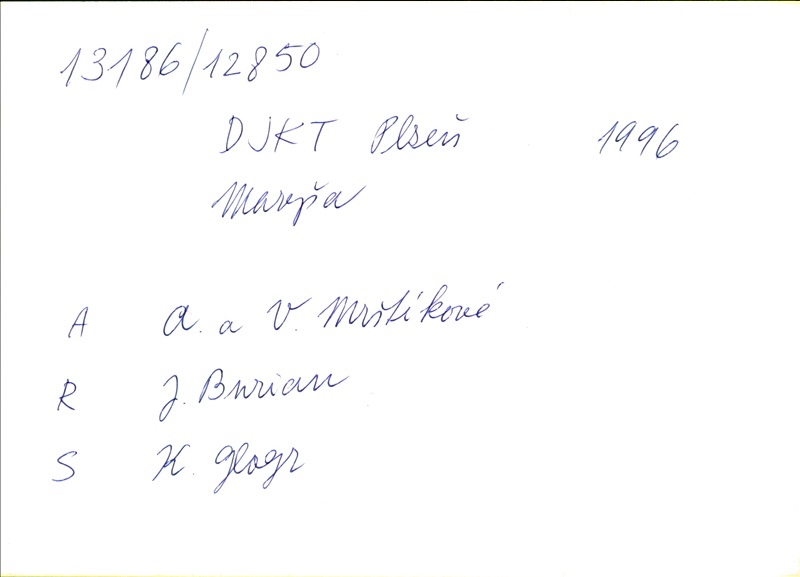 13186/12850
DJKT Plzeň 1996
Maryša
A A. a V. Mrštíkové
R J. Burian
S K. Glogr